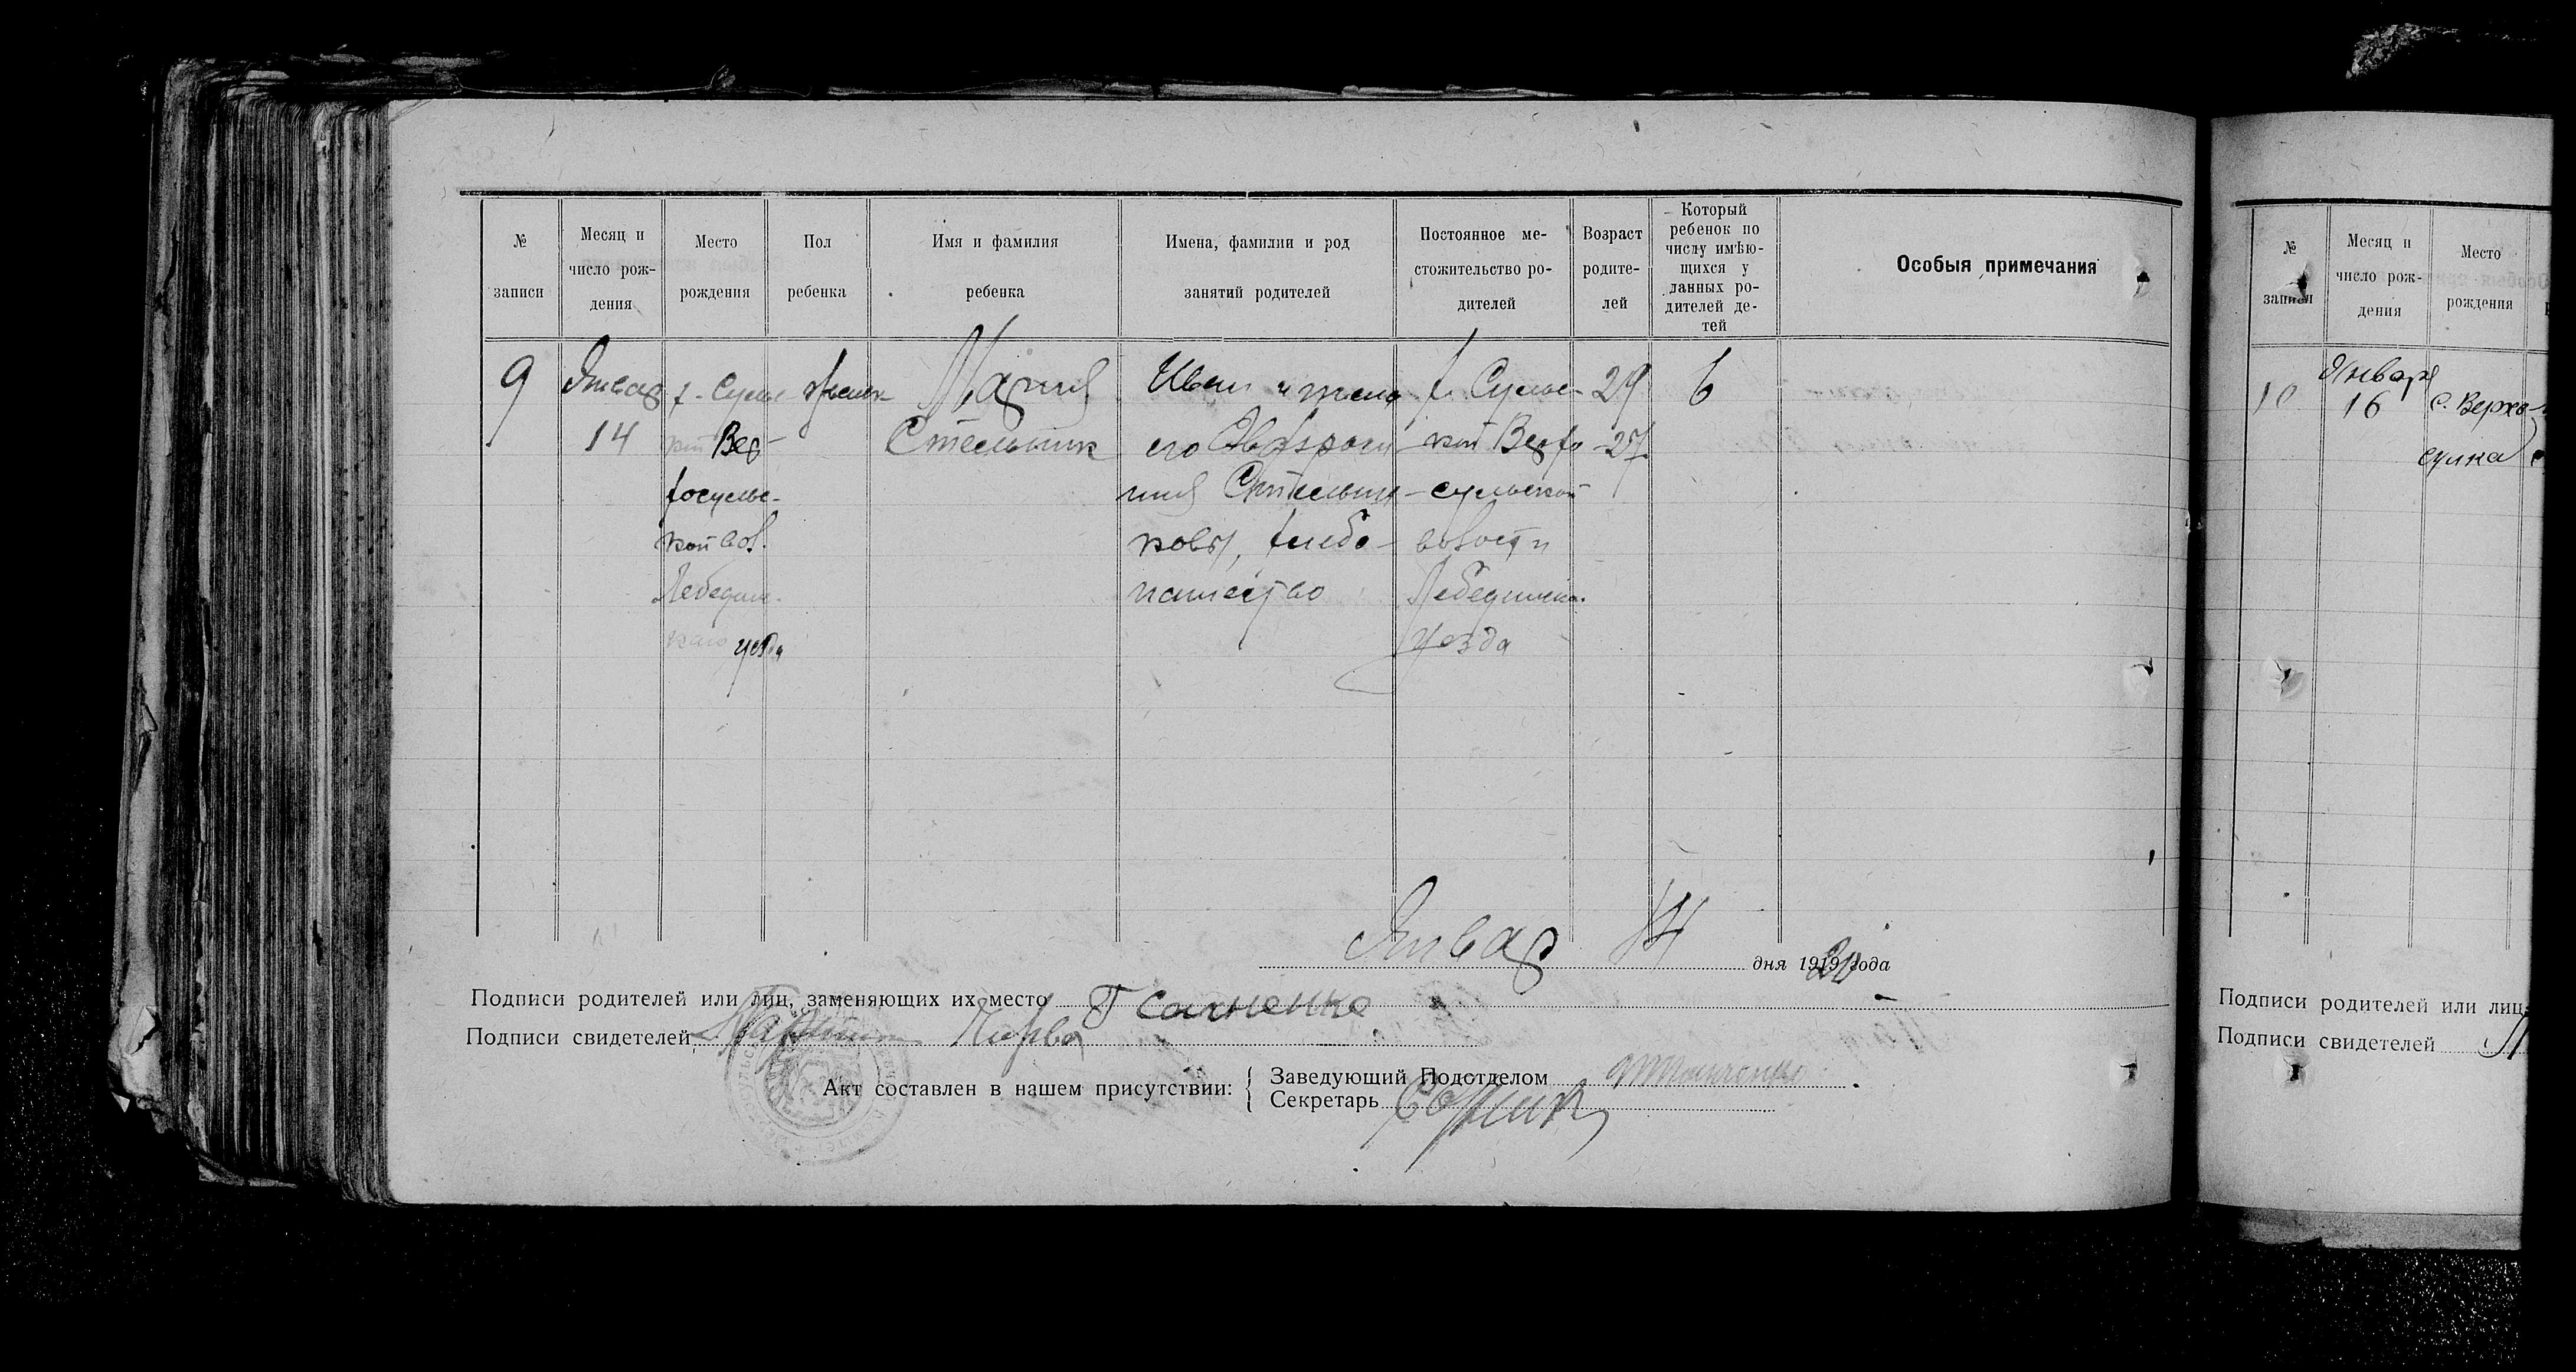 № записи
Месяц и число рож-дения
Место рождения
Пол ребенка
Имя и фамилия ребенка
Имена, фамилии и род занятий родителей
Постоянное ме-стожительство ро-дителей
Возраст родите-лей
Который ребенок по числу имѣю-щихся у данных ро-дителей де-тей
Особыя примечания
9
Январ
14
х. Сульс
кой Вер-
хосульс-
кой вол.
Лебедин-
каго уезда
женск
Мария
Стельник
Иван и жена
его
Стельни-
ковы, хлебо-
пашество
х. Сульс-
кой Верхо
сульской
волости
Лебединск.
уезда
29
-27
6
Январ 14 дня 1920 года
Подписи родителей или лиц, заменяющих их место Г Сахненко
Подписи свидетелей
Акт составлен в нашем присутствии:
Заведующий Подотделом
Секретарь
№ записи
Месяц и число рож-дения
Место рождения
10
Января
16
с. Верхо-
сулка
Подписи родителей или лиц
Подписи свидетелей